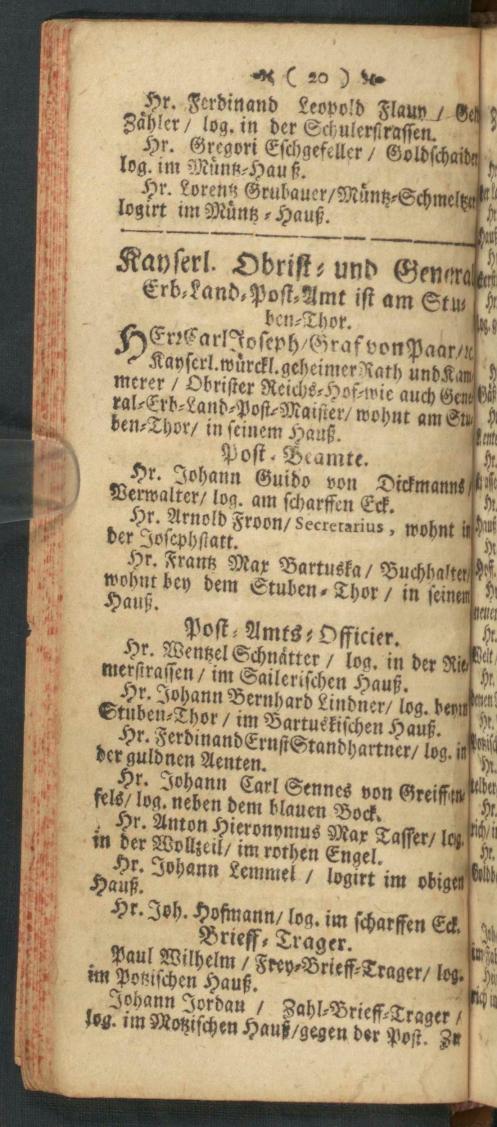 ( 20 )
Hr. Ferdinand Leopold Flauy / Geh
Zähler / log. in der Schulerstrassen.
Hr. Gregori Eschgefeller / Goldschaider
log. im Müntz-Hauß.
Hr. Lorentz Grubauer / Müntz-Schmeltzer
logirt im Müntz-Hauß.
Kayserl. Obrist- und General
Erb-Land-Post-Amt ist am Stu-
ben-Thor.
HErr Carl Joseph / Graf von Paar / rc
Kayserl. würckl. geheimer Rath und Kam
merer / Obrister Reichs-Hof-wie auch Gene
ral-Erb-Land-Post-Maister / wohnt am Stu
ben-Thor / in seinem Hauß.
Post-Beamte.
Hr. Johann Guido von Dickmanns /
Verwalter / log. am scharffen Eck.
Hr. Arnold Froon / Secretarius, wohnt in
der Josephstatt.
Hr. Frantz Max Bartuska / Buchhalter /
wohnt bey dem Stuben-Thor / in seinem
Hauß.
Post-Amts-Officier.
Hr. Wentzel Schnätter / log. in der Rie-
merstrassen / im Sailerischen Hauß.
Hr. Johann Bernhard Lindner / log. beym
Stuben-Thor / im Bartuskischen Hauß.
Hr. Ferdinand Ernst Standhartner / log. in
der guldnen Aenten.
Hr. Johann Carl Sennes von Greiffen-
fels / log. neben dem blauen Bock.
Hr. Anton Hieronymus Max Tasser / log.
in der Wollzeil / im rothen Engel.
Hr. Johann Lemmel / logirt im obigen
Hauß.
Hr. Joh. Hofmann / log. im scharffen Eck.
Brieff-Trager.
Paul Wilhelm / Frey-Brieff-Trager / log.
im Potzischen Hauß.
Johann Jordan / Zahl-Brieff-Trager /
log. im Motzischen Hauß / gegen der Post. Zu